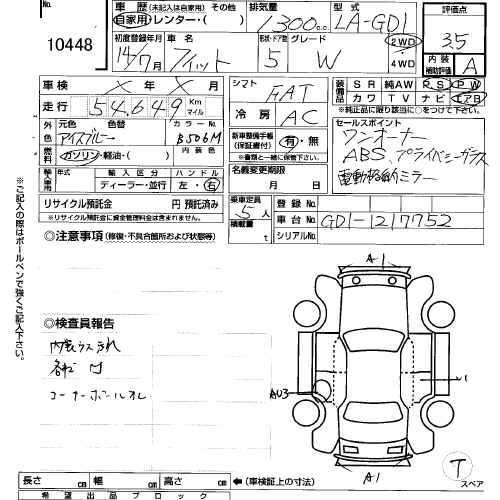 No.
10448
車歴 (未記入は自家用) その他
自家用・レンター・( )
排気量
1300cc
型式
LA-GD1
評価点
3.5
初度登録年月
14/7月
車名
フィット
形状・ドア数
5
グレード
W
2WD
4WD
内装補助評価
A
車検 X年X月
走行 54,649 Km マイル
シフト
FAT
冷房
AC
装備品
SR 純AW PS PW
カワ TV ナビ エアB
※純正品に限り該当に○をつけて下さい。
外色
元色
アイスブルー
色替
カラーNo.
B506M
内装色
燃料
ガソリン・軽油・( )
新車整備手帳(保証書付)
有・無
※書類と一緒に保管下さい。
セールスポイント
ワンオーナー
ABS、プライバシーガラス
電動格納ミラー
輸入車
年式
輸入区分
ディーラー・並行
ハンドル
左・右
名義変更期限
月 日
リサイクル預託金 円 預託済み
※リサイクル預託金に資金管理料金は含まれません。
乗車定員
5人
積載量
t
登録No.
車台No. GD1-1217752
シリアルNo.
◎注意事項 (修復・不具合箇所および状態等)
◎検査員報告
内装ウス汚れ
コーナーポールオレ
A1
AU3
A1
T
スペア
※ご記入の際はボールペンで強くご記入下さい。
長さ cm 幅 cm 高さ cm ◀(車検証上の寸法)
希望出品ブロック